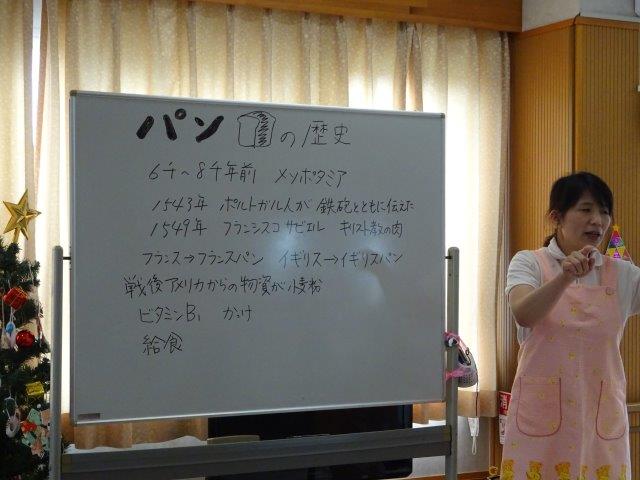 パンの歴史
6千〜8千年前 メソポタミア
1543年 ポルトガル人が 鉄砲とともに伝えた
1549年 フランシスコ サビエル キリスト教の肉
フランス→フランスパン イギリス→イギリスパン
戦後アメリカからの物資が小麦粉
ビタミンB₁ かっけ
給食